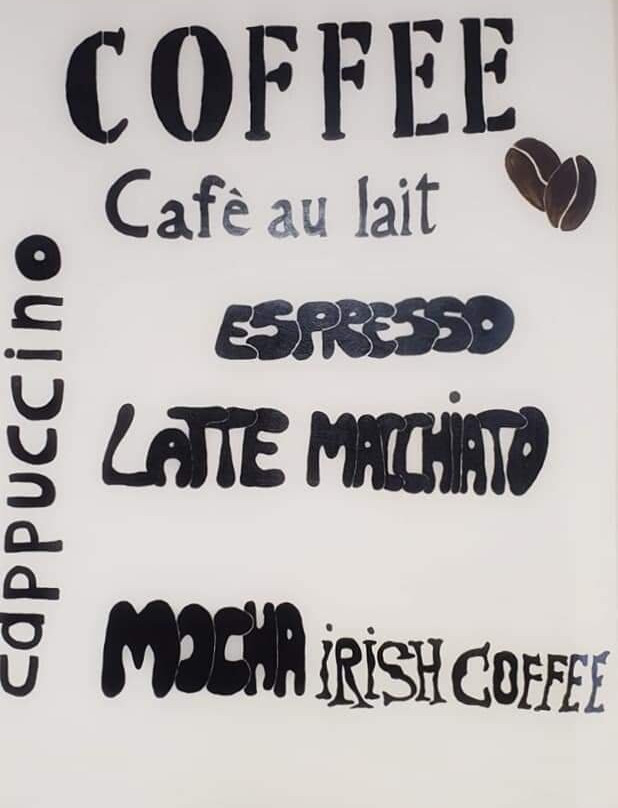 COFFEE
Cafè au lait
cappuccino
ESPRESSO
LATTE MACCHiATO
MOCHA iRiSH COFFEE